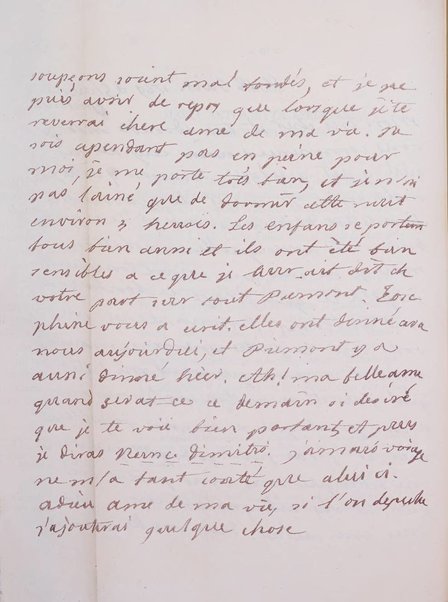 soupçons soient mal fondés, et je ne
puis avoir de repos que lorsque je te
reverrai chere ame de ma vie. ne
sois cependant pas en peine pour
moi, je me porte très bien, et je n'ai
pas laissé que de dormir cette nuit
environ 3 heures. Les enfans se portent
tous bien aussi et ils ont été bien
sensibles a ce que je leur ait dit de
votre part sur tout Piemont
phine vous a ecrit. elles ont dinné avec
nous aujourdui, et Piemont y a
aussi dinné hier. Ah! ma belle ame
quand serat ce ce demain si desiré
que je te voie bien portant, et puis
je diras Dimitri. jamais voiage
ne m'a tant couté que celui ci.
adieu ame de ma vie, si l'on depeche
j'ajouterai quelque chose